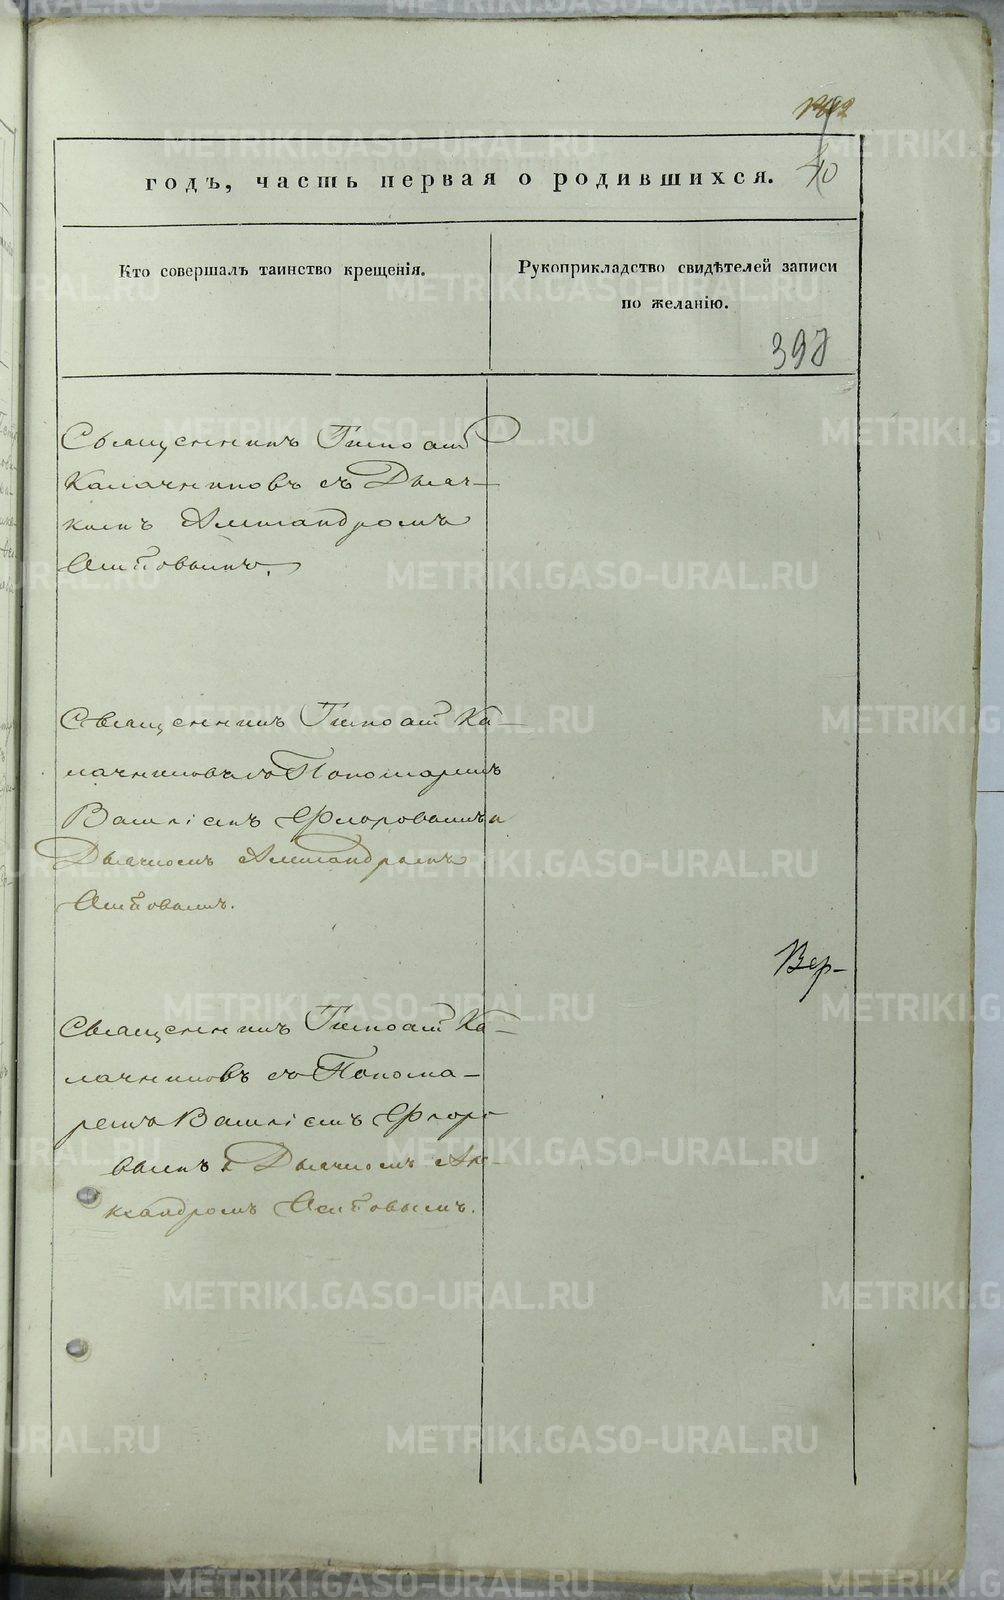 40
годъ, часть первая о родившихся.
Кто совершалъ таинство крещенія.
Рукоприкладство свидѣтелей записи
по желанію.
397
Священникъ Гипо
Калачниковъ съ Дьяч-
комъ Александромъ
Осиповымъ.
Священникъ Ка-
лачниковъ съ Пономаремъ
Василіемъ Флоровымъ и
Дьячкомъ Александромъ
Осиповымъ.
Вер-
Священникъ Ка-
лачниковъ съ Понома-
ремъ Василіемъ Флоро
вымъ и Дьячкомъ Але-
ксандромъ Осиповымъ.
METRIKI.GASO-URAL.RU